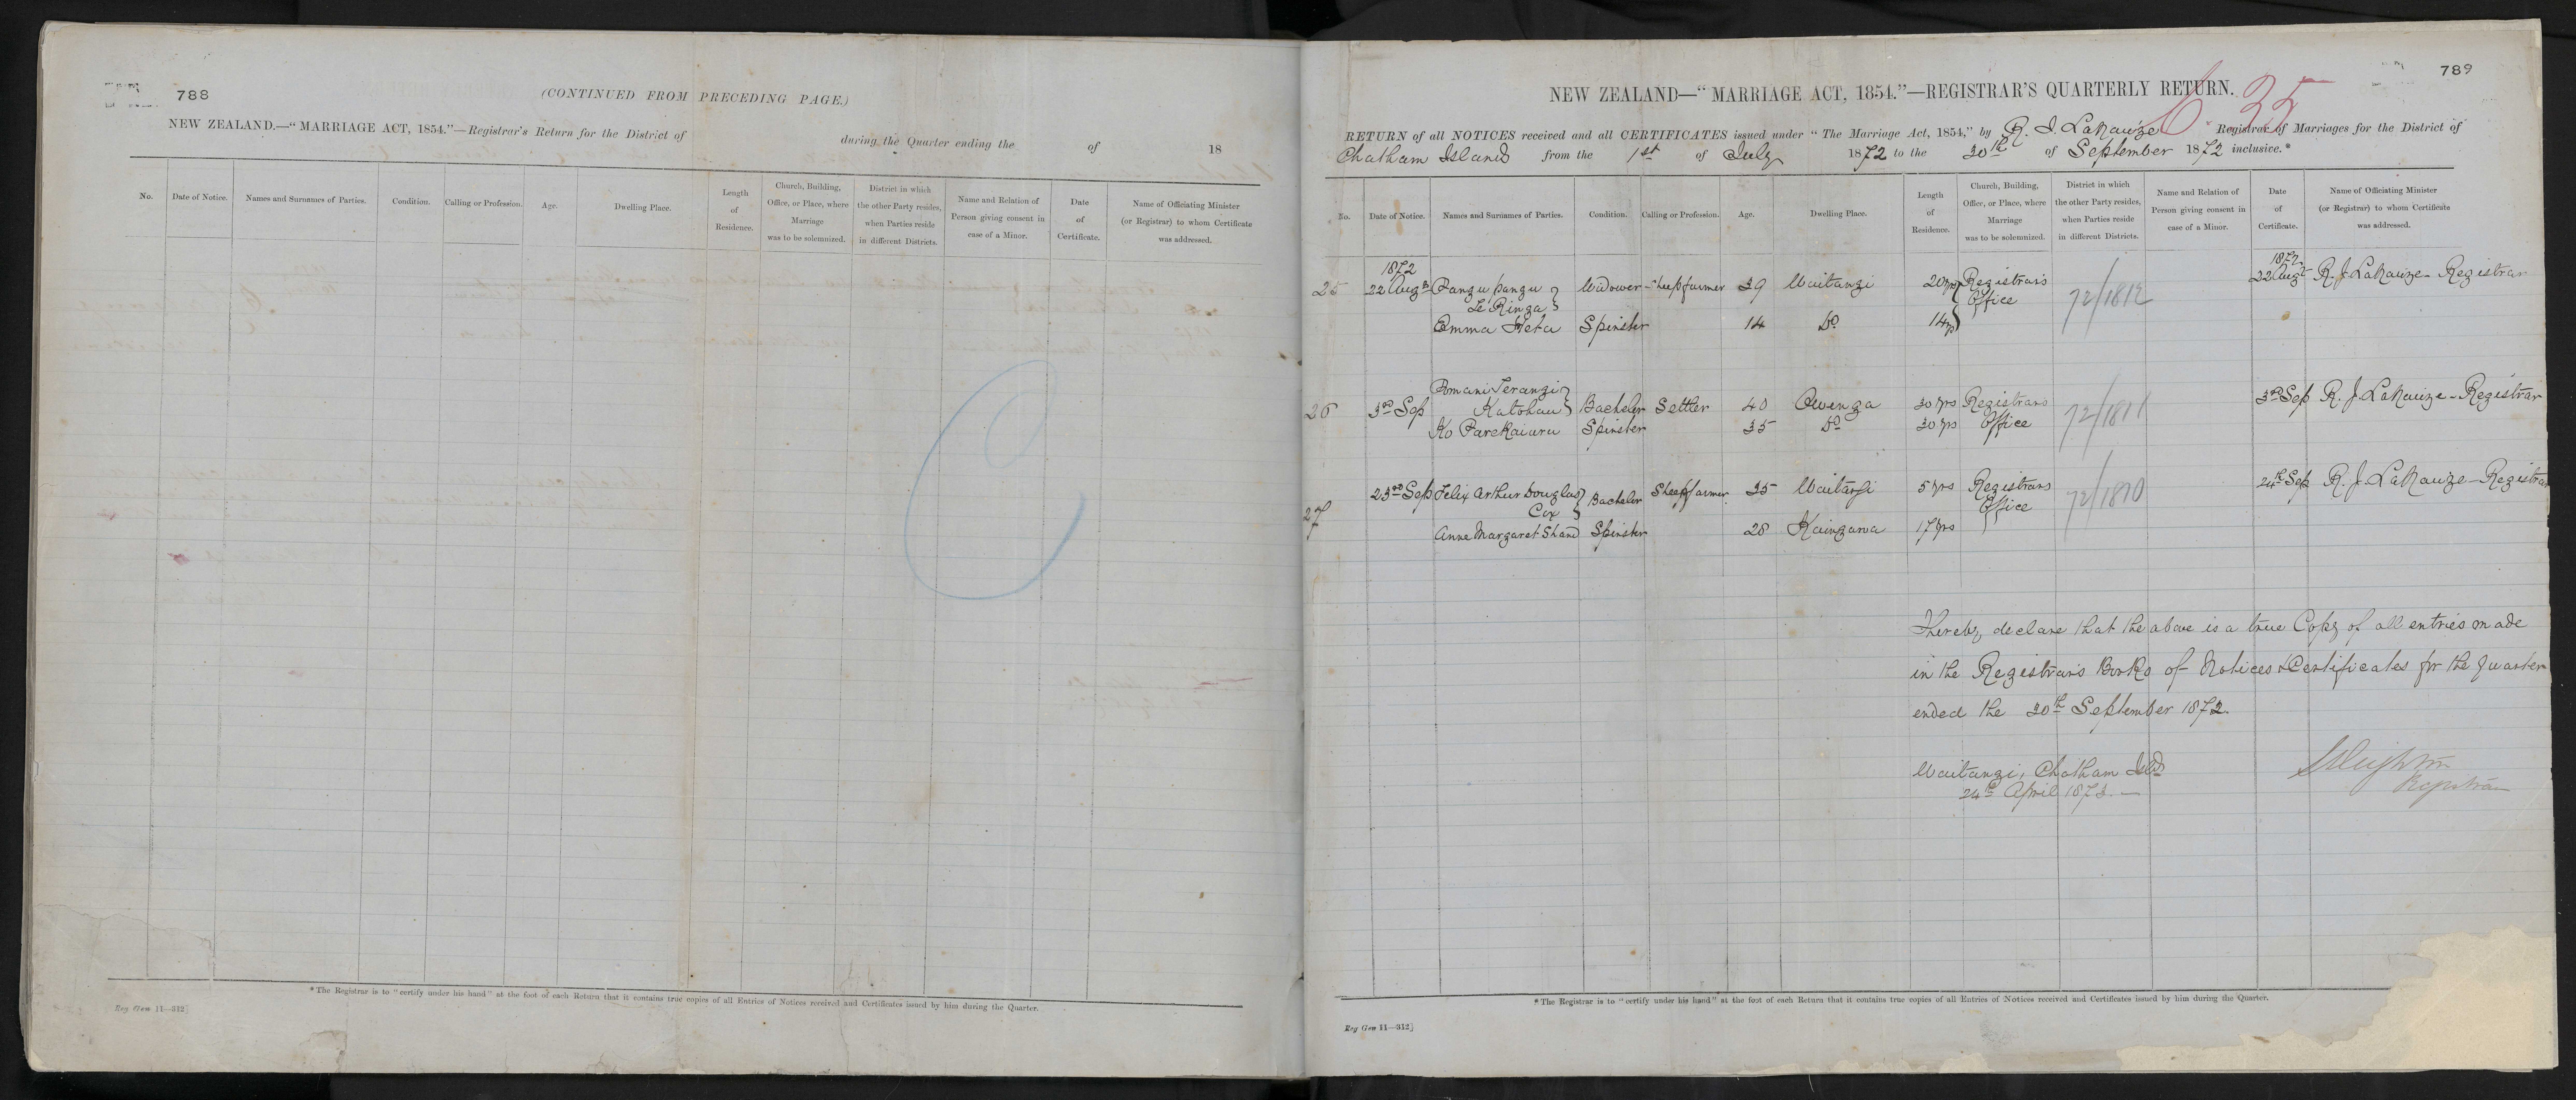 788
(CONTINUED FROM PRECEDING PAGE.)
NEW ZEALAND.—"MARRIAGE ACT, 1854."—Registrar's Return for the District of during the Quarter ending the of 18
No. Date of Notice. Names and Surnames of Parties. Condition. Calling or Profession. Age. Dwelling Place. Length of Residence. Church, Building, Office, or Place, where Marriage was to be solemnized. District in which the other Party resides, when Parties reside in different Districts. Name and Relation of Person giving consent in case of a Minor. Date of Certificate. Name of Officiating Minister (or Registrar) to whom Certificate was addressed.
* The Registrar is to "certify under his hand" at the foot of each Return that it contains true copies of all Entries of Notices received and Certificates issued by him during the Quarter.
Reg Gen 11—312]
789
NEW ZEALAND—"MARRIAGE ACT, 1854."—REGISTRAR'S QUARTERLY RETURN.
25
RETURN of all NOTICES received and all CERTIFICATES issued under "The Marriage Act, 1854," by R. J. Lanauze Registrar of Marriages for the District of
Chatham Islands from the 1st of July 1872 to the 30th of September 1872 inclusive.*
No. Date of Notice. Names and Surnames of Parties. Condition. Calling or Profession. Age. Dwelling Place. Length of Residence. Church, Building, Office, or Place, where Marriage was to be solemnized. District in which the other Party resides, when Parties reside in different Districts. Name and Relation of Person giving consent in case of a Minor. Date of Certificate. Name of Officiating Minister (or Registrar) to whom Certificate was addressed.
1872 1872
25 22 Augst Pangupangu Widower Sheepfarmer 39 Waitangi 20 yrs Registrars 72/1812 22 Augt R. J. Lanauze - Registrar
Te Ringa Office
Emma Heta Spinster 14 Do 14 yrs
Pomani Terangi
26 3rd Sep Katohau Bachelor Settler 40 Owenga 30 yrs Registrars 72/1811 3rd Sep R. J. Lanauze - Registrar
Ko Parekaiuru Spinster 35 Do 30 yrs Office
27 23rd Sep Felix Arthur Douglas Bachelor Sheepfarmer 35 Waitangi 5 yrs Registrars 72/1810 24th Sep R. J. Lanauze - Registrar
Cox Office
Anne Margaret Shand Spinster 28 Kaingaroa 17 yrs
I hereby declare that the above is a true Copy of all entries made
in the Registrar's Books of Notices & Certificates for the Quarter
ended the 30th September 1872.
Waitangi, Chatham Islds
24th April 1873. —
Registrar
* The Registrar is to "certify under his hand" at the foot of each Return that it contains true copies of all Entries of Notices received and Certificates issued by him during the Quarter.
Reg Gen 11—312]